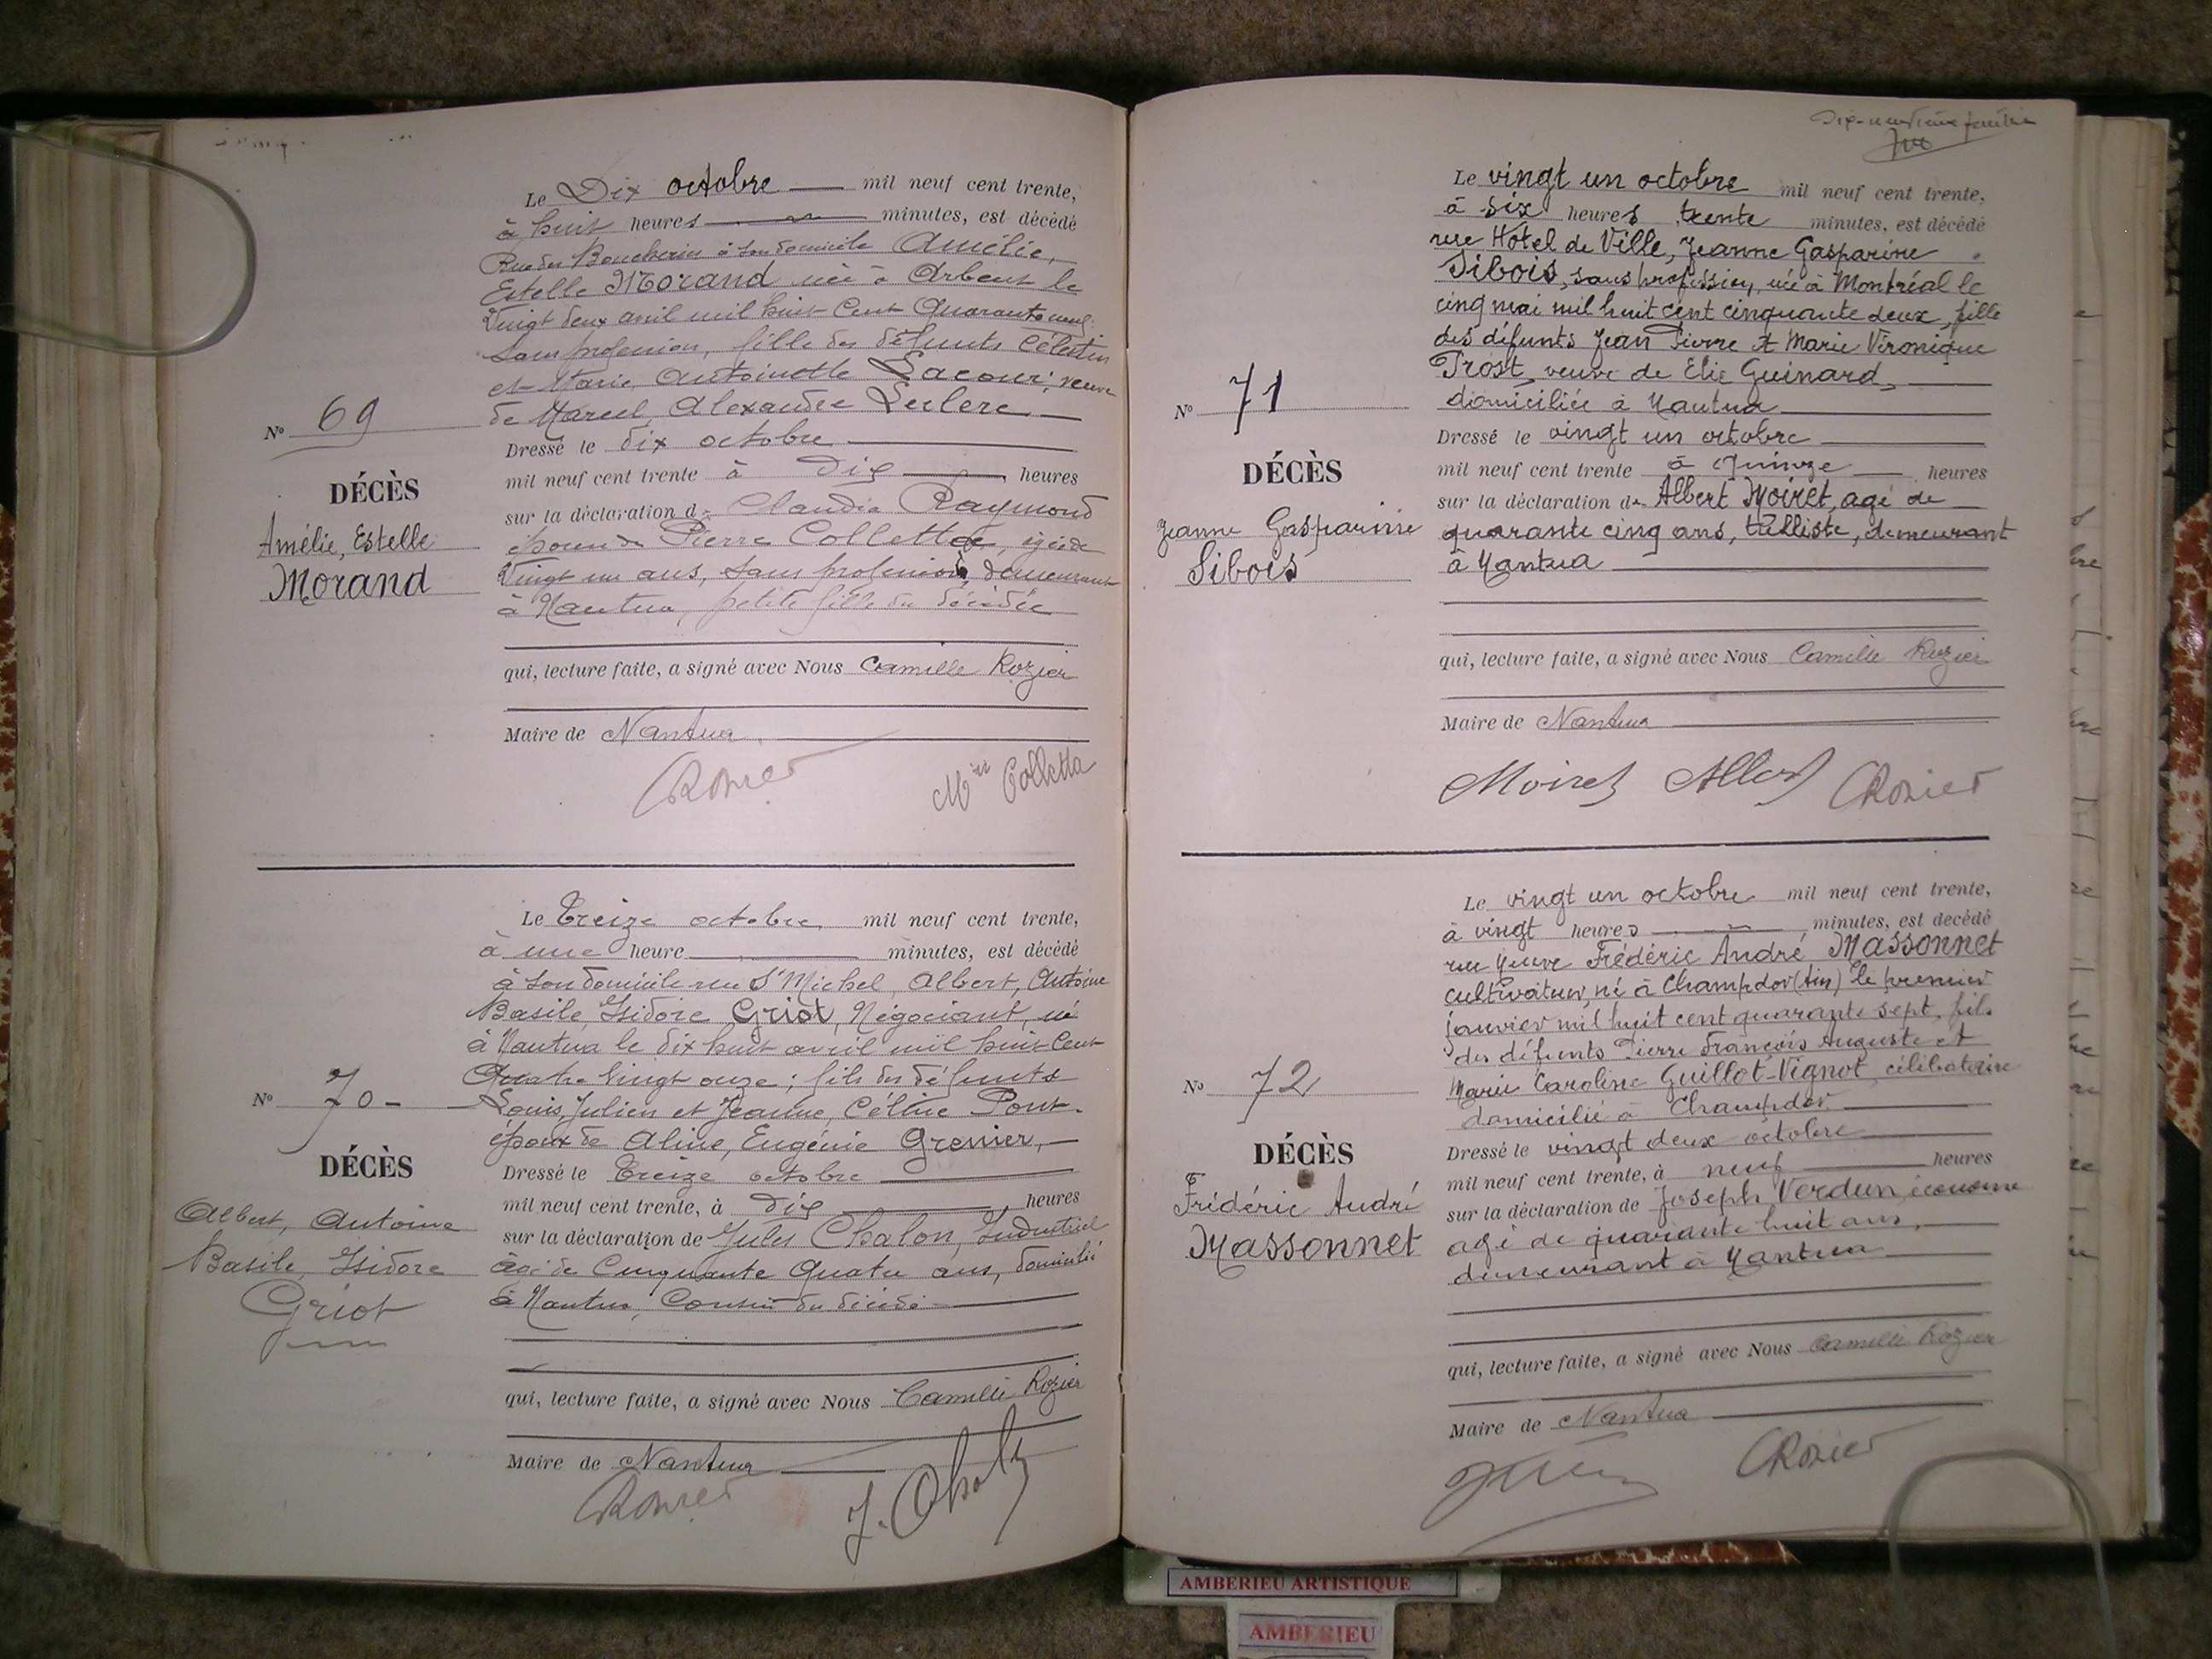 Le Dix octobre mil neuf cent trente,
à huit heures minutes, est décédé
Rue des Boucheries à son domicile Amélie,
Estelle Morand née à Arbent le
Vingt deux avril mil huit Cent Quarante neuf
Sans profession, fille des défunts Célestin
et Marie Antoinette Lacour, veuve
de Marcel, Alexandre Leclerc
Nº 69
Dressé le dix octobre
mil neuf cent trente à Dix heures
DÉCÈS
sur la déclaration de Claudia Raymond
Amélie, Estelle
Morand
épouse de Pierre Colletta, âgée de
Vingt un ans, sans profession, demeurant
à Nantua, petite fille du décédée
qui, lecture faite, a signé avec Nous Camille Rozier
Maire de Nantua
CRozier
Colletta
Le Treize octobre mil neuf cent trente,
à une heure minutes, est décédé
à son domicile rue St Michel, Albert, Antoine
Basile, Isidore Griot, Négociant, né
à Nantua le dix huit avril mil huit Cent
Quatre Vingt onze ; fils des défunts
Nº 70 -
Louis, Julien et Jeanne, Céline Pont
époux de Aline, Eugénie Grenier,
DÉCÈS
Dressé le Treize octobre
mil neuf cent trente, à Dix heures
Albert, Antoine
Basile, Isidore
Griot
sur la déclaration de Jules Chalon, Industriel
âgé de Cinquante Quatre ans, domicilié
à Nantua, Cousin du décédé
qui, lecture faite, a signé avec Nous Camille Rozier
Maire de Nantua
CRozier
J. Chalon
Dix-neuvième feuillet
Le vingt un octobre mil neuf cent trente,
à six heures trente minutes, est décédé
rue Hôtel de Ville, Jeanne Gasparine
Sibois, sans profession, née à Montréal le
cinq mai mil huit cent cinquante deux, fille
des défunts Jean Pierre et Marie Véronique
Prost, veuve de Elie Guinard,
domiciliée à Nantua
Nº 71
Dressé le vingt un octobre
mil neuf cent trente à Quinze heures
DÉCÈS
sur la déclaration de Albert Moiret, agé de
Jeanne Gasparine
Sibois
quarante cinq ans, tulliste, demeurant
à Nantua
qui, lecture faite, a signé avec Nous Camille Rozier
Maire de Nantua
Moiret Albert CRozier
Le vingt un octobre mil neuf cent trente,
à vingt heures minutes, est décédé
rue Neuve Frédéric André Massonnet
cultivateur, né à Champdor (Ain) le premier
janvier mil huit cent quarante sept, fils
des défunts Pierre François Auguste et
Marie Caroline Guillot-Vignot, célibataire
domicilié à Champdor
Nº 72
Dressé le vingt deux octobre
mil neuf cent trente, à neuf heures
DÉCÈS
sur la déclaration de Joseph Verdun, économe
Frédéric André
Massonnet
agé de quarante huit ans,
demeurant à Nantua
qui, lecture faite, a signé avec Nous Camille Rozier
Maire de Nantua
CRozier
AMBERIEU ARTISTIQUE
AMBERIEU